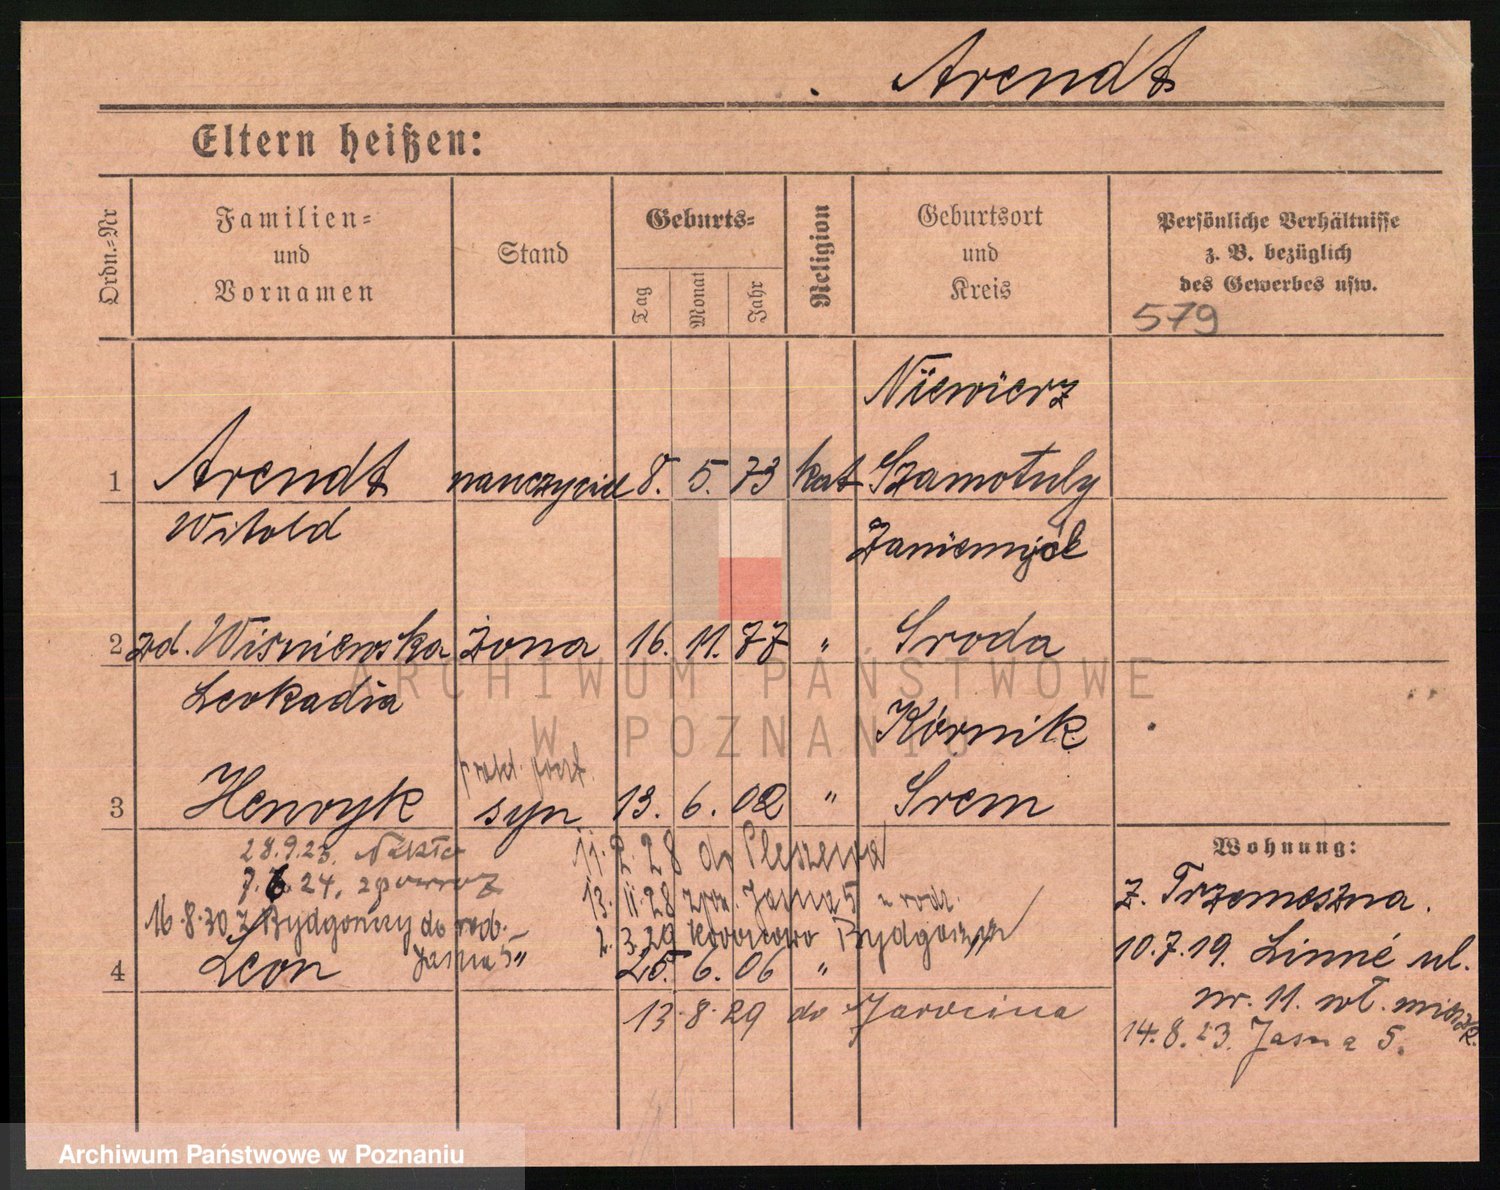 Arendt
Eltern heißen:
Ordn.=Nr
Familien=
und
Vornamen
Stand
Geburts=
Tag
Monat
Jahr
Religion
Geburtsort
und
Kreis
Persönliche Verhältnisse
z. B. bezüglich
des Gewerbes usw.
579
Niewierz
1 Arendt nauczyciel 8. 5. 73 kat Szamotuly
Witold
Zaniemyśl
2 zd. Wiśniewska żona 16. 11. 77 " Sroda
Leokadia
Kórnik
prakt. poczt.
3 Henryk syn 13. 6. 02 " Srem
28.9.23. Nakło
7.6.24. zpowroz
16.8.30 z Bydgoszczy do rod.
Jasna 5"
11. 2. 28 do Pleszewa
13. 11. 28 zpow. Jasna 5 u rodz.
2. 3. 29 Bydgoszcz
4 Leon 25. 6. 06 "
13. 8. 29 do Jarocina
Wohnung:
z. Trzemeszna.
10.7.19. Linné ul.
nr. 11. wł. mieszk.
14.8.23. Jasna 5.
ARCHIWUM PAŃSTWOWE
W POZNANIU
Archiwum Państwowe w Poznaniu